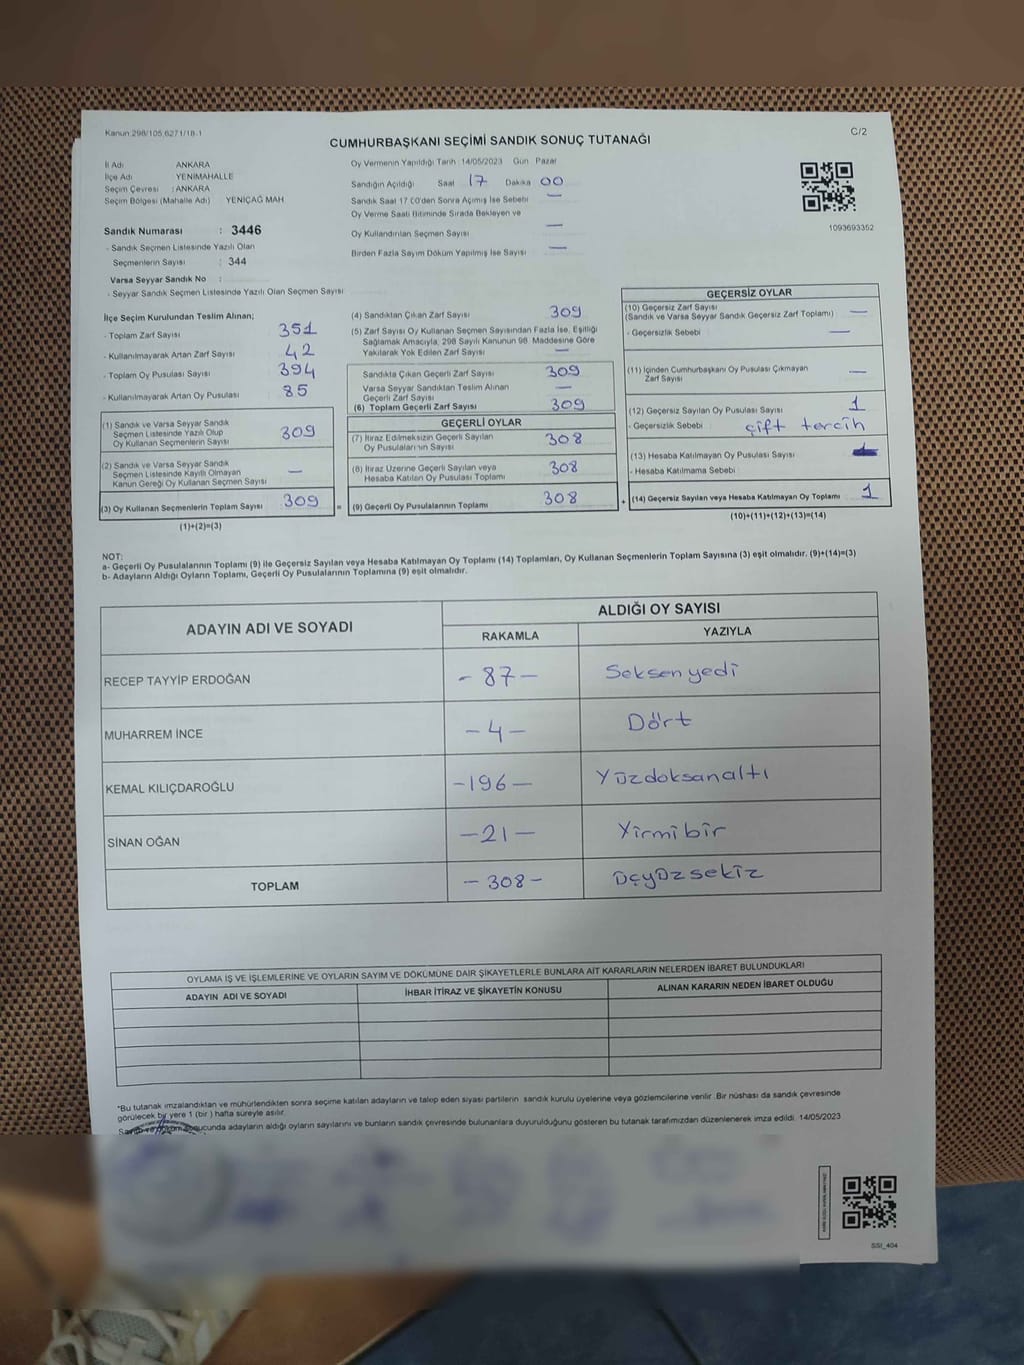 Kanun 298/105,6271/18-1
CUMHURBAŞKANI SEÇİMİ SANDIK SONUÇ TUTANAĞI
C/2
İl Adı ANKARA
İlçe Adı YENİMAHALLE
Seçim Çevresi : ANKARA
Seçim Bölgesi (Mahalle Adı) YENİÇAĞ MAH
Sandık Numarası : 3446
- Sandık Seçmen Listesinde Yazılı Olan
Seçmenlerin Sayısı : 344
Varsa Seyyar Sandık No :
- Seyyar Sandık Seçmen Listesinde Yazılı Olan Seçmen Sayısı
Oy Vermenin Yapıldığı Tarih : 14/05/2023 Gün Pazar
Sandığın Açıldığı Saat 17 Dakika 00
Sandık Saat 17.00'den Sonra Açımış İse Sebebi —
Oy Verme Saati Bitiminde Sırada Bekleyen ve
Oy Kullandırılan Seçmen Sayısı —
Birden Fazla Sayım Döküm Yapılmış İse Sayısı —
1093693352
İlçe Seçim Kurulundan Teslim Alınan;
- Toplam Zarf Sayısı 351
- Kullanılmayarak Artan Zarf Sayısı 42
- Toplam Oy Pusulası Sayısı 394
- Kullanılmayarak Artan Oy Pusulası 85
(1) Sandık ve Varsa Seyyar Sandık
Seçmen Listesinde Yazılı Olup
Oy Kullanan Seçmenlerin Sayısı 309
(2) Sandık ve Varsa Seyyar Sandık
Seçmen Listesinde Kayıtlı Olmayan
Kanun Gereği Oy Kullanan Seçmen Sayısı —
(3) Oy Kullanan Seçmenlerin Toplam Sayısı 309
(1)+(2)=(3)
=
(4) Sandıktan Çıkan Zarf Sayısı 309
(5) Zarf Sayısı Oy Kullanan Seçmen Sayısından Fazla İse, Eşitliği
Sağlamak Amacıyla, 298 Sayılı Kanunun 98. Maddesine Göre
Yakılarak Yok Edilen Zarf Sayısı —
Sandıkta Çıkan Geçerli Zarf Sayısı 309
Varsa Seyyar Sandıktan Teslim Alınan
Geçerli Zarf Sayısı —
(6) Toplam Geçerli Zarf Sayısı 309
GEÇERLİ OYLAR
(7) İtiraz Edilmeksizin Geçerli Sayılan
Oy Pusulalarının Sayısı 308
(8) İtiraz Üzerine Geçerli Sayılan veya
Hesaba Katılan Oy Pusulası Toplamı 308
(9) Geçerli Oy Pusulalarının Toplamı 308
+
GEÇERSİZ OYLAR
(10) Geçersiz Zarf Sayısı
(Sandık ve Varsa Seyyar Sandık Geçersiz Zarf Toplamı) —
- Geçersizlik Sebebi —
(11) İçinden Cumhurbaşkanı Oy Pusulası Çıkmayan
Zarf Sayısı —
(12) Geçersiz Sayılan Oy Pusulası Sayısı 1
- Geçersizlik Sebebi çift tercih
(13) Hesaba Katılmayan Oy Pusulası Sayısı
- Hesaba Katılmama Sebebi
(14) Geçersiz Sayılan veya Hesaba Katılmayan Oy Toplamı 1
(10)+(11)+(12)+(13)=(14)
NOT:
a- Geçerli Oy Pusulalarının Toplamı (9) ile Geçersiz Sayılan veya Hesaba Katılmayan Oy Toplamı (14) Toplamları, Oy Kullanan Seçmenlerin Toplam Sayısına (3) eşit olmalıdır. (9)+(14)=(3)
b- Adayların Aldığı Oyların Toplamı, Geçerli Oy Pusulalarının Toplamına (9) eşit olmalıdır.
ADAYIN ADI VE SOYADI ALDIĞI OY SAYISI
RAKAMLA YAZIYLA
RECEP TAYYİP ERDOĞAN - 87 - Seksen yedi
MUHARREM İNCE - 4 - Dört
KEMAL KILIÇDAROĞLU - 196 - Yüzdoksanaltı
SİNAN OĞAN - 21 - Yirmi bir
TOPLAM - 308 - üçyüz sekiz
OYLAMA İŞ VE İŞLEMLERİNE VE OYLARIN SAYIM VE DÖKÜMÜNE DAİR ŞİKAYETLERLE BUNLARA AİT KARARLARIN NELERDEN İBARET BULUNDUKLARI
ADAYIN ADI VE SOYADI İHBAR İTİRAZ VE ŞİKAYETİN KONUSU ALINAN KARARIN NEDEN İBARET OLDUĞU
*Bu tutanak imzalandıktan ve mühürlendikten sonra seçime katılan adayların ve talep eden siyasi partilerin sandık kurulu üyelerine veya gözlemcilerine verilir. Bir nüshası da sandık çevresinde
görülecek bir yere 1 (bir ) hafta süreyle asılır.
Sayım ve döküm sonucunda adayların aldığı oyların sayılarını ve bunların sandık çevresinde bulunanlara duyurulduğunu gösteren bu tutanak tarafımızdan düzenlenerek imza edildi. 14/05/2023
SSI_404